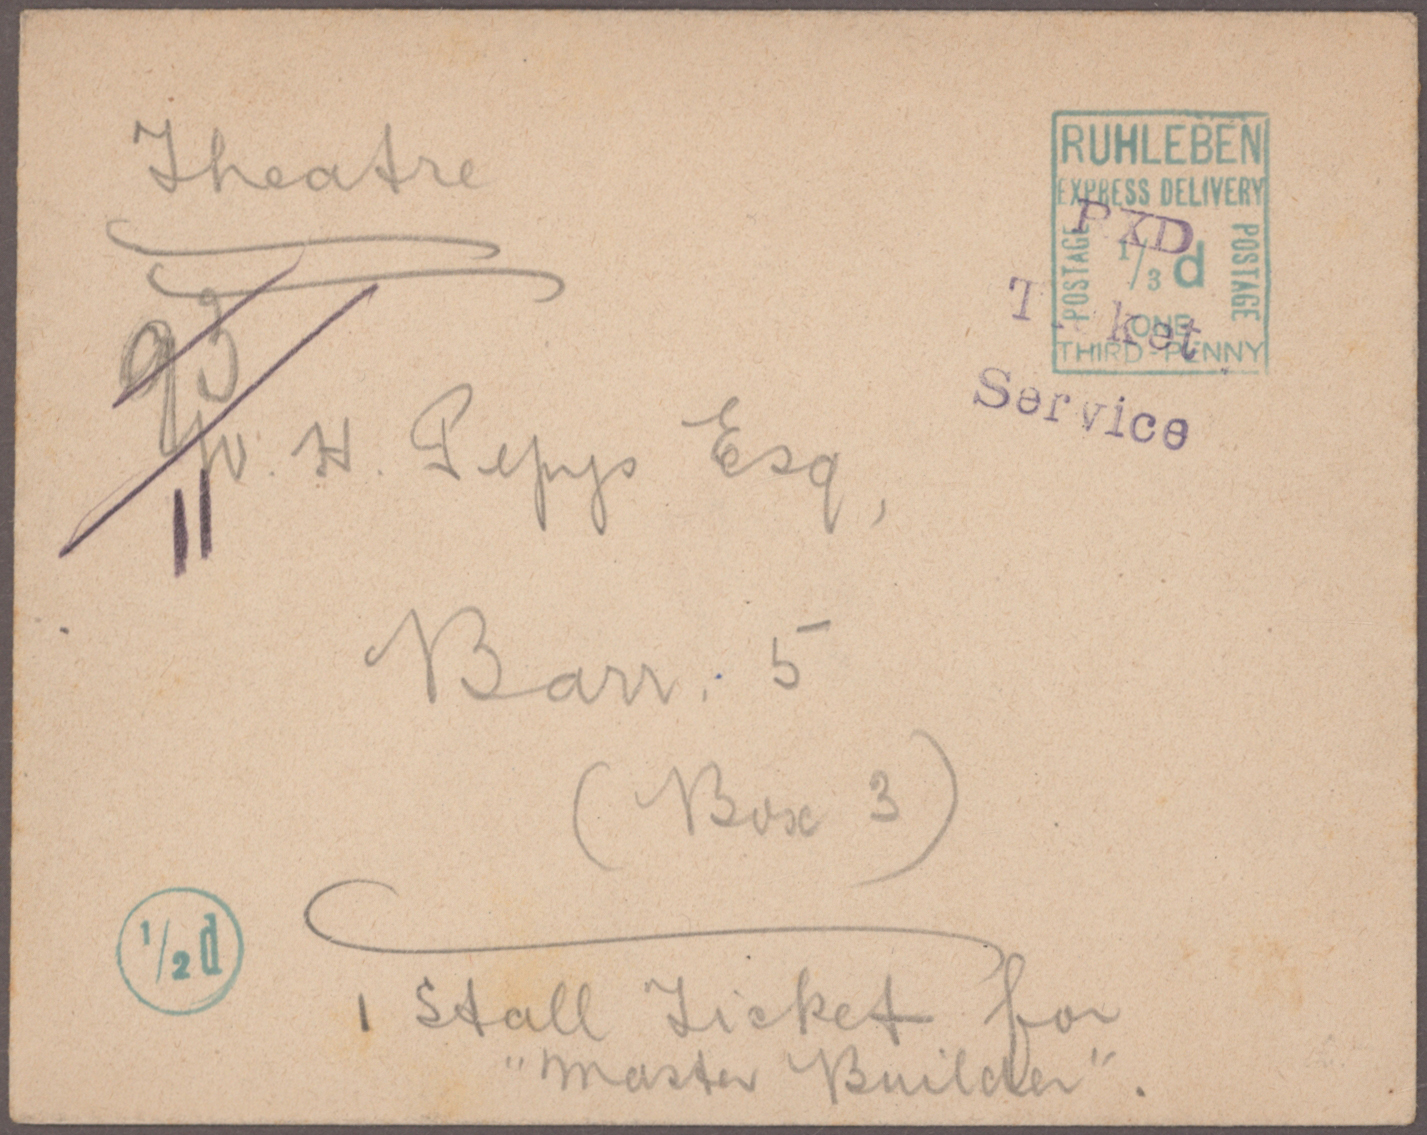 Theatre
93
W. H. Pepys Esq,
Barr. 5
(Box 3)
1 Stall Ticket for
"Master Builder".
RUHLEBEN
EXPRESS DELIVERY
POSTAGE
1/3 d
POSTAGE
ONE
THIRD-PENNY
RXD
Ticket
Service
1/2 d